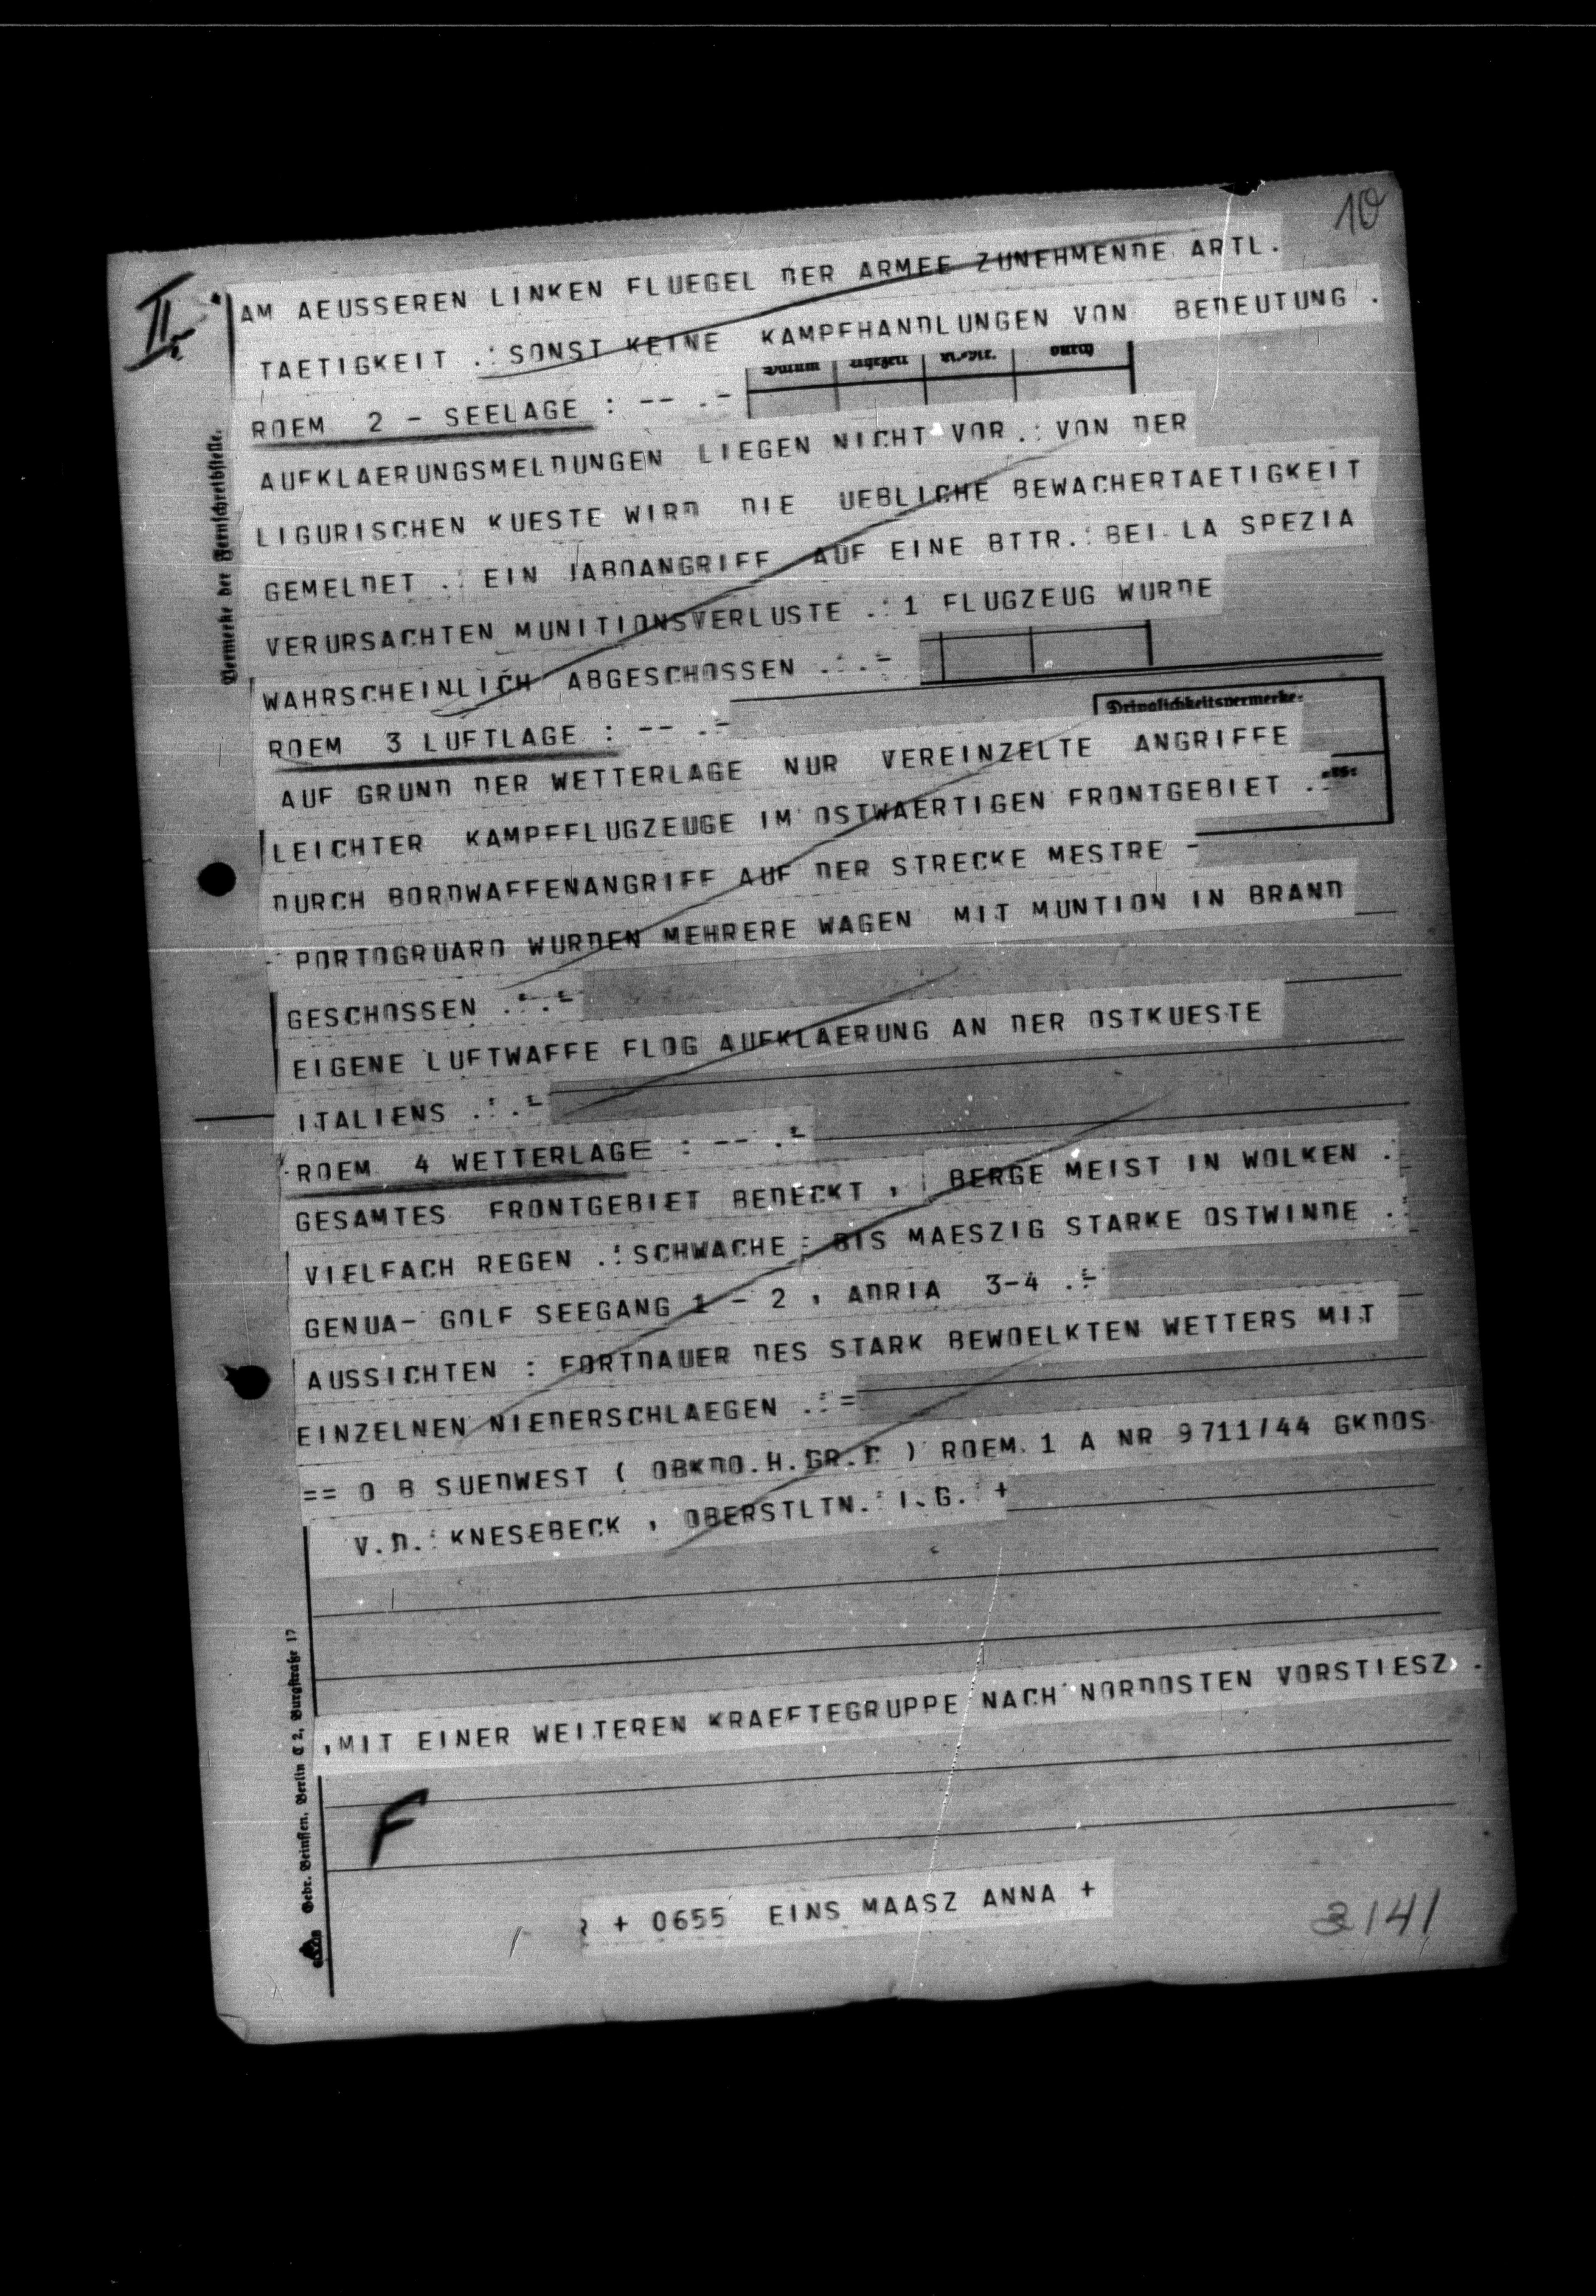 10
II.
AM AEUSSEREN LINKEN FLUEGEL DER ARMEE ZUNEHMENDE ARTL.
TAETIGKEIT .: SONST KEINE KAMPFHANDLUNGEN VON BEDEUTUNG .
Datum Uhrzeit durch
ROEM 2 - SEELAGE : -- .-
AUFKLAERUNGSMELDUNGEN LIEGEN NICHT VOR .: VON DER
LIGURISCHEN KUESTE WIRD DIE UEBLICHE BEWACHERTAETIGKEIT
GEMELDET .: EIN JABOANGRIFF AUF EINE BTTR.: BEI LA SPEZIA
VERURSACHTEN MUNITIONSVERLUSTE .: 1 FLUGZEUG WURDE
WAHRSCHEINLICH ABGESCHOSSEN .: .-
Dringlichkeitsvermerke:
ROEM 3 LUFTLAGE : -- .-
AUF GRUND DER WETTERLAGE NUR VEREINZELTE ANGRIFFE
LEICHTER KAMPFFLUGZEUGE IM OSTWAERTIGEN FRONTGEBIET .:
DURCH BORDWAFFENANGRIFF AUF DER STRECKE MESTRE -
- PORTOGRUARO WURDEN MEHRERE WAGEN MIT MUNTION IN BRAND
GESCHOSSEN .: .-
EIGENE LUFTWAFFE FLOG AUFKLAERUNG AN DER OSTKUESTE
ITALIENS .: .-
ROEM 4 WETTERLAGE : -- .-
GESAMTES FRONTGEBIET BEDECKT , BERGE MEIST IN WOLKEN .
VIELFACH REGEN .: SCHWACHE : BIS MAESZIG STARKE OSTWINDE .:
GENUA- GOLF SEEGANG 1 - 2 , ADRIA 3-4 .-
AUSSICHTEN : FORTDAUER DES STARK BEWOELKTEN WETTERS MIT
EINZELNEN NIEDERSCHLAEGEN .: =
== O B SUEDWEST ( OBKDO.H.GR.C ) ROEM 1 A NR 9711/44 GKDOS
V.D.: KNESEBECK , OBERSTLTN.: I.G. +
,MIT EINER WEITEREN KRAEFTEGRUPPE NACH NORDOSTEN VORSTIESZ .
F
+ 0655 EINS MAASZ ANNA +
3141
Vermerke der Fernschreibstelle.
Gebr. Beinssen, Berlin C 2, Burgstraße 17